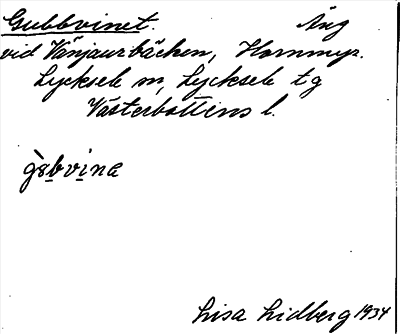 Gubbvinet. Äng
vid Vänjaurbäcken, Hornmyr.
Lycksele sn, Lycksele tg
Västerbottens l.
gùbvina
Lisa Lidberg 1934